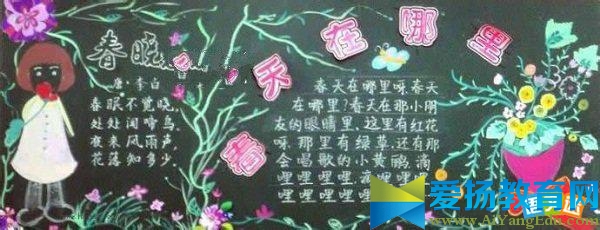 春天在哪里
春晓
唐·李白
春眠不觉晓,
处处闻啼鸟,
夜来风雨声,
花落知多少。
春天在哪里呀,春天
在哪里?春天在那小朋
友的眼睛里,这里有红花
呀,那里有绿草,还有那
会唱歌的小黄鹂,滴
哩哩哩哩
哩哩哩哩
爱扬教育网
www.AiYangEdu.com